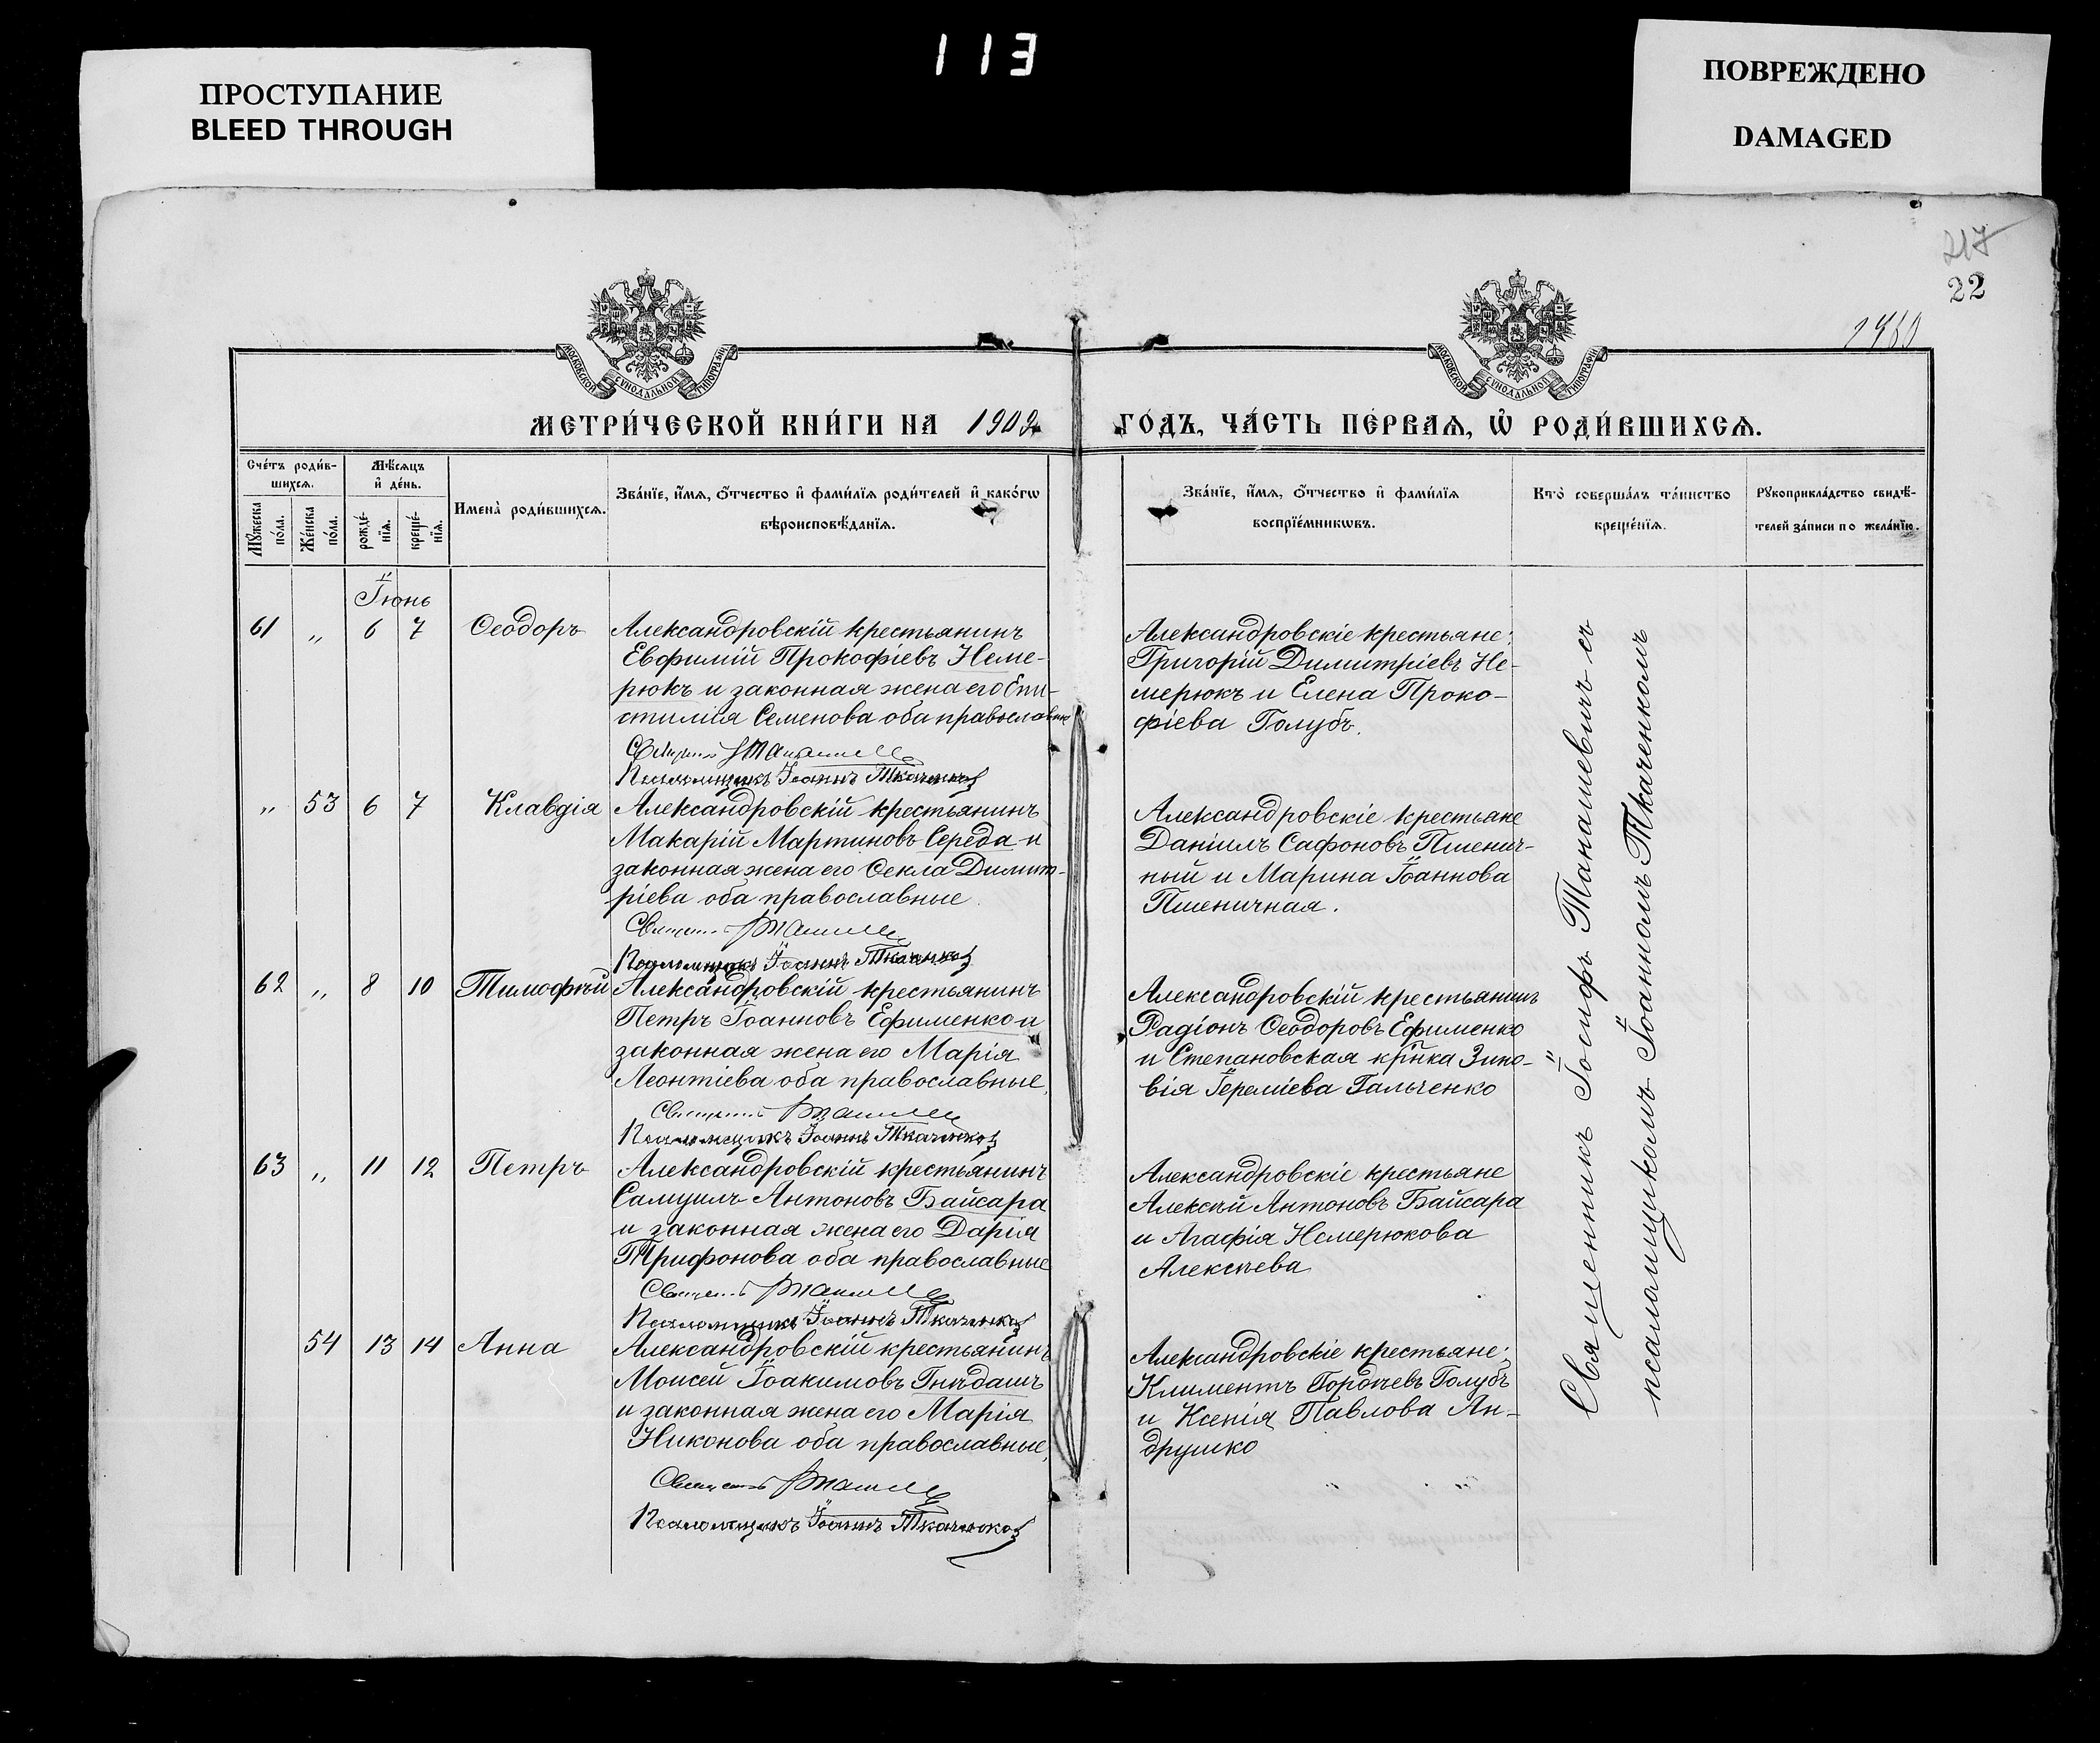 113
ПРОСТУПАНИЕ
BLEED THROUGH
ПОВРЕЖДЕНО
DAMAGED
217
22
МОСКОВСКОЙ СѴНОДАЛЬНОЙ ТИПОГРАФІИ
МОСКОВСКОЙ СѴНОДАЛЬНОЙ ТИПОГРАФІИ
МЕТРИ́ЧЕСКОЙ КНИ́ГИ НА 1902 ГО́ДЪ, ЧА́СТЬ ПЕ́РВАѦ, Ѡ РОДИ́ВШИХСѦ.
Сче́тъ роди́в-
шихсѧ.
Мꙋ́жеска по́ла.
Же́нска по́ла.
Мѣ́сѧцъ
и де́нь.
рожде́-
нїѧ.
креще́-
нїѧ.
Имена̀ роди́вшихсѧ.
Зва́нїе, и́мѧ, о́тчество и фами́лїѧ роди́телей и како́гѡ
вѣроисповѣ́данїѧ.
Зва́нїе, и́мѧ, о́тчество и фами́лїѧ
воспрїе́мникѡвъ.
Кто̀ соверша́лъ та́инство
креще́нїѧ.
Рꙋкоприкла́дство свидѣ́-
телей за́писи по жела́нїю.
Іюнь
61 „ 6 7 Ѳеодоръ
Александровскій крестьянинъ
Евфимій Прокофіевъ Неме-
рюкъ и законная жена его Епи-
стимія Семенова оба православные
Псаломщикъ Іоаннъ Ткаченко
Александровскіе крестьяне:
Григорій Димитріевъ Не-
мерюкъ и Елена Проко-
фіева Голубъ.
„ 53 6 7 Клавдія
Александровскій крестьянинъ
Макарій Мартиновъ Середа и
законная жена его Ѳекла Димит-
ріева оба православные
Псаломщикъ Іоаннъ Ткаченко
Александровскіе крестьяне
Даніилъ Сафоновъ Пшенич-
ный и Марина Іоаннова
Пшеничная.
62 „ 8 10 Тимоѳей
Александровскій крестьянинъ
Петръ Іоанновъ Ефименко и
законная жена его Марія
Леонтіева оба православные.
Псаломщикъ Іоаннъ Ткаченко
Александровскій крестьянинъ
Радіонъ Ѳеодоровъ Ефименко
и Степановская кр̃нка Зино-
вія Іереміева Гальченко
63 „ 11 12 Петръ
Александровскій крестьянинъ
Самуилъ Антоновъ Байсара
и законная жена его Дарія
Трифонова оба православные
Псаломщикъ Іоаннъ Ткаченко
Александровскіе крестьяне
Алексѣй Антоновъ Байсара
и Агафія Немерюкова
Алексѣева
54 13 14 Анна
Александровскій крестьянинъ
Моисей Іоакимовъ Гнѣдашъ
и законная жена его Марія
Никонова оба православные,
Псаломщикъ Іоаннъ Ткаченко
Александровскіе крестьяне:
Климентъ Гордѣевъ Голубъ
и Ксенія Павлова Ан-
друшко
Священникъ Іосифъ Танашевичъ съ
псаломщикомъ Іоанномъ Ткаченкомъ